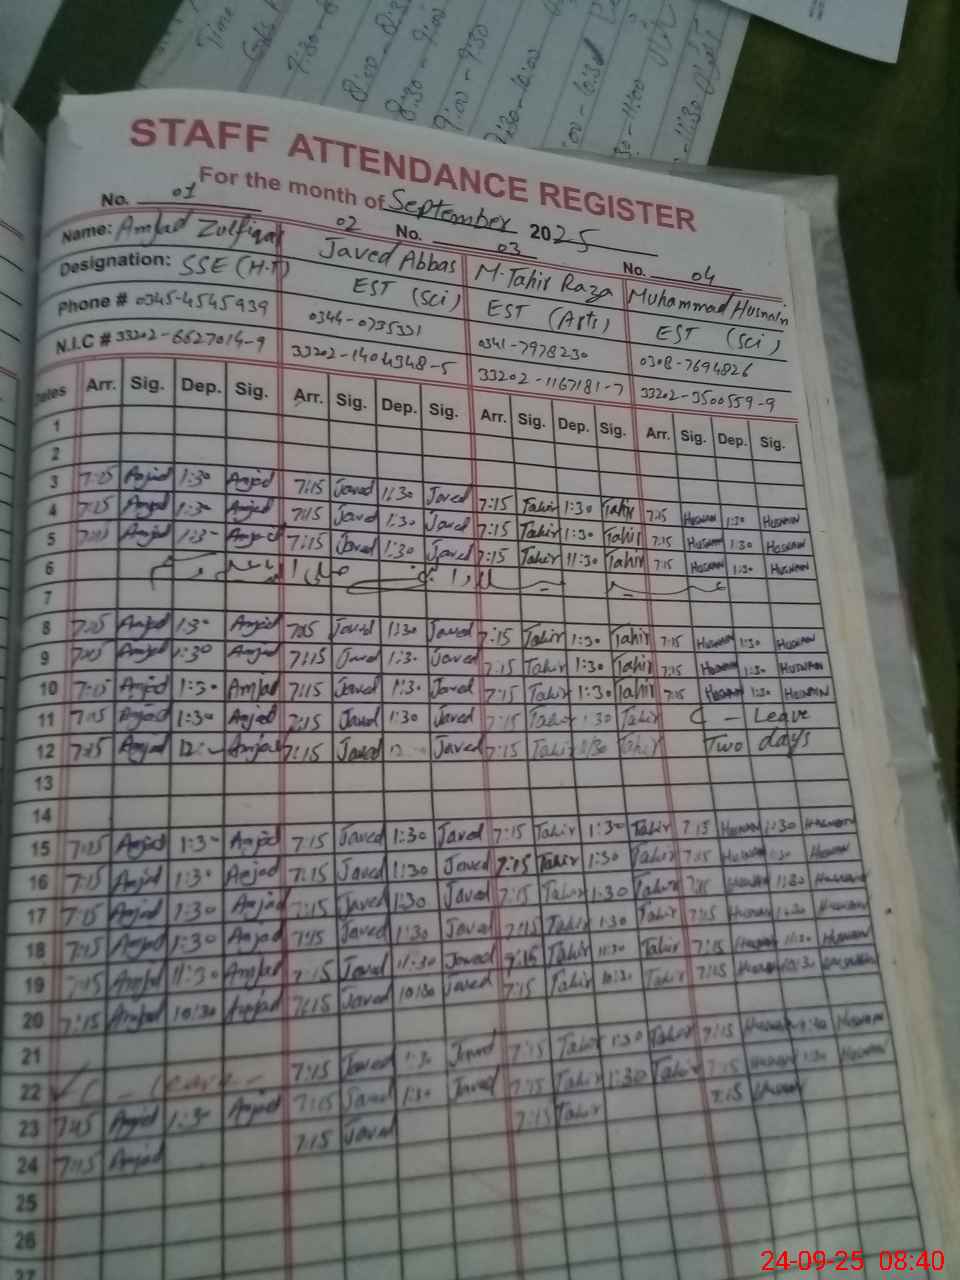 Time
7:30 - 8
8:00 - 8:30
8:30 - 9:00
9:00 - 9:30
9:30 - 10:00
10:30
11:00
11:30
STAFF ATTENDANCE REGISTER
For the month of September 2025
No. 01 02 No. 03 No. 04
Name: Amjad Zulfiqar Javed Abbas M. Tahir Raza Muhammad Husnain
Designation: SSE (H.T) EST (Sci) EST (Arts) EST (Sci)
Phone # 0345-4545939 0344-0735331 0341-7978230 0308-7694826
N.I.C # 33202-6627014-9 33202-1404348-5 33202-1167181-7 33202-3500559-9
Dates Arr. Sig. Dep. Sig. Arr. Sig. Dep. Sig. Arr. Sig. Dep. Sig. Arr. Sig. Dep. Sig.
1
2
3 7:15 Amjad 1:30 Amjad 7:15 Javed 1:30 Javed 7:15 Tahir 1:30 Tahir 7:15 HUSNAIN 1:30 HUSNAIN
4 7:15 Amjad 1:30 Amjad 7:15 Javed 1:30 Javed 7:15 Tahir 1:30 Tahir 7:15 HUSNAIN 1:30 HUSNAIN
5 7:15 Amjad Amjad 7:15 Javed 1:30 Javed 7:15 Tahir 11:30 Tahir 7:15 HUSNAIN 1:30 HUSNAIN
6
7
8 7:15 Amjad 1:30 Amjad 7:15 Javed 1:30 Javed 7:15 Tahir 1:30 Tahir 7:15 HUSNAIN 1:30 HUSNAIN
9 7:15 Amjad 1:30 Amjad 7:15 Javed 1:30 Javed 7:15 Tahir 1:30 Tahir 7:15 HUSNAIN 1:30 HUSNAIN
10 7:15 Amjad 1:30 Amjad 7:15 Javed 1:30 Javed 7:15 Tahir 1:30 Tahir 7:15 HUSNAIN 1:30 HUSNAIN
11 7:15 Amjad 1:30 Amjad 7:15 Javed 1:30 Javed 7:15 Tahir 1:30 Tahir C - Leave
12 7:15 Amjad 12:- Amjad 7:15 Javed 12 Javed 7:15 Tahir Tahir Two days
13
14
15 7:15 Amjad 1:30 Amjad 7:15 Javed 1:30 Javed 7:15 Tahir 1:30 Tahir 7:15 HUSNAIN 1:30 HUSNAIN
16 7:15 Amjad 1:30 Amjad 7:15 Javed 1:30 Javed 7:15 Tahir 1:30 Tahir 7:15 HUSNAIN 1:30 HUSNAIN
17 7:15 Amjad 1:30 Amjad 7:15 Javed 1:30 Javed 7:15 Tahir 1:30 Tahir 7:15 HUSNAIN 1:30 HUSNAIN
18 7:15 Amjad 1:30 Amjad 7:15 Javed 1:30 Javed 7:15 Tahir 1:30 Tahir 7:15 HUSNAIN 1:30 HUSNAIN
19 7:15 Amjad 11:30 Amjad 7:15 Javed 11:30 Javed 7:15 Tahir 11:30 Tahir 7:15 HUSNAIN 11:30 HUSNAIN
20 7:15 Amjad 10:30 Amjad 7:15 Javed 10:30 Javed 7:15 Tahir 10:30 Tahir 7:15 HUSNAIN 10:30 HUSNAIN
21
22 C - Leave - 7:15 Javed 1:30 Javed 7:15 Tahir 1:30 Tahir 7:15 HUSNAIN 1:30 HUSNAIN
23 7:15 Amjad 1:30 Amjad 7:15 Javed 1:30 Javed 7:15 Tahir 1:30 Tahir 7:15 HUSNAIN 1:30 HUSNAIN
24 7:15 Amjad 7:15 Javed 7:15 Tahir 7:15 HUSNAIN
25
26
27
24-09-25 08:40